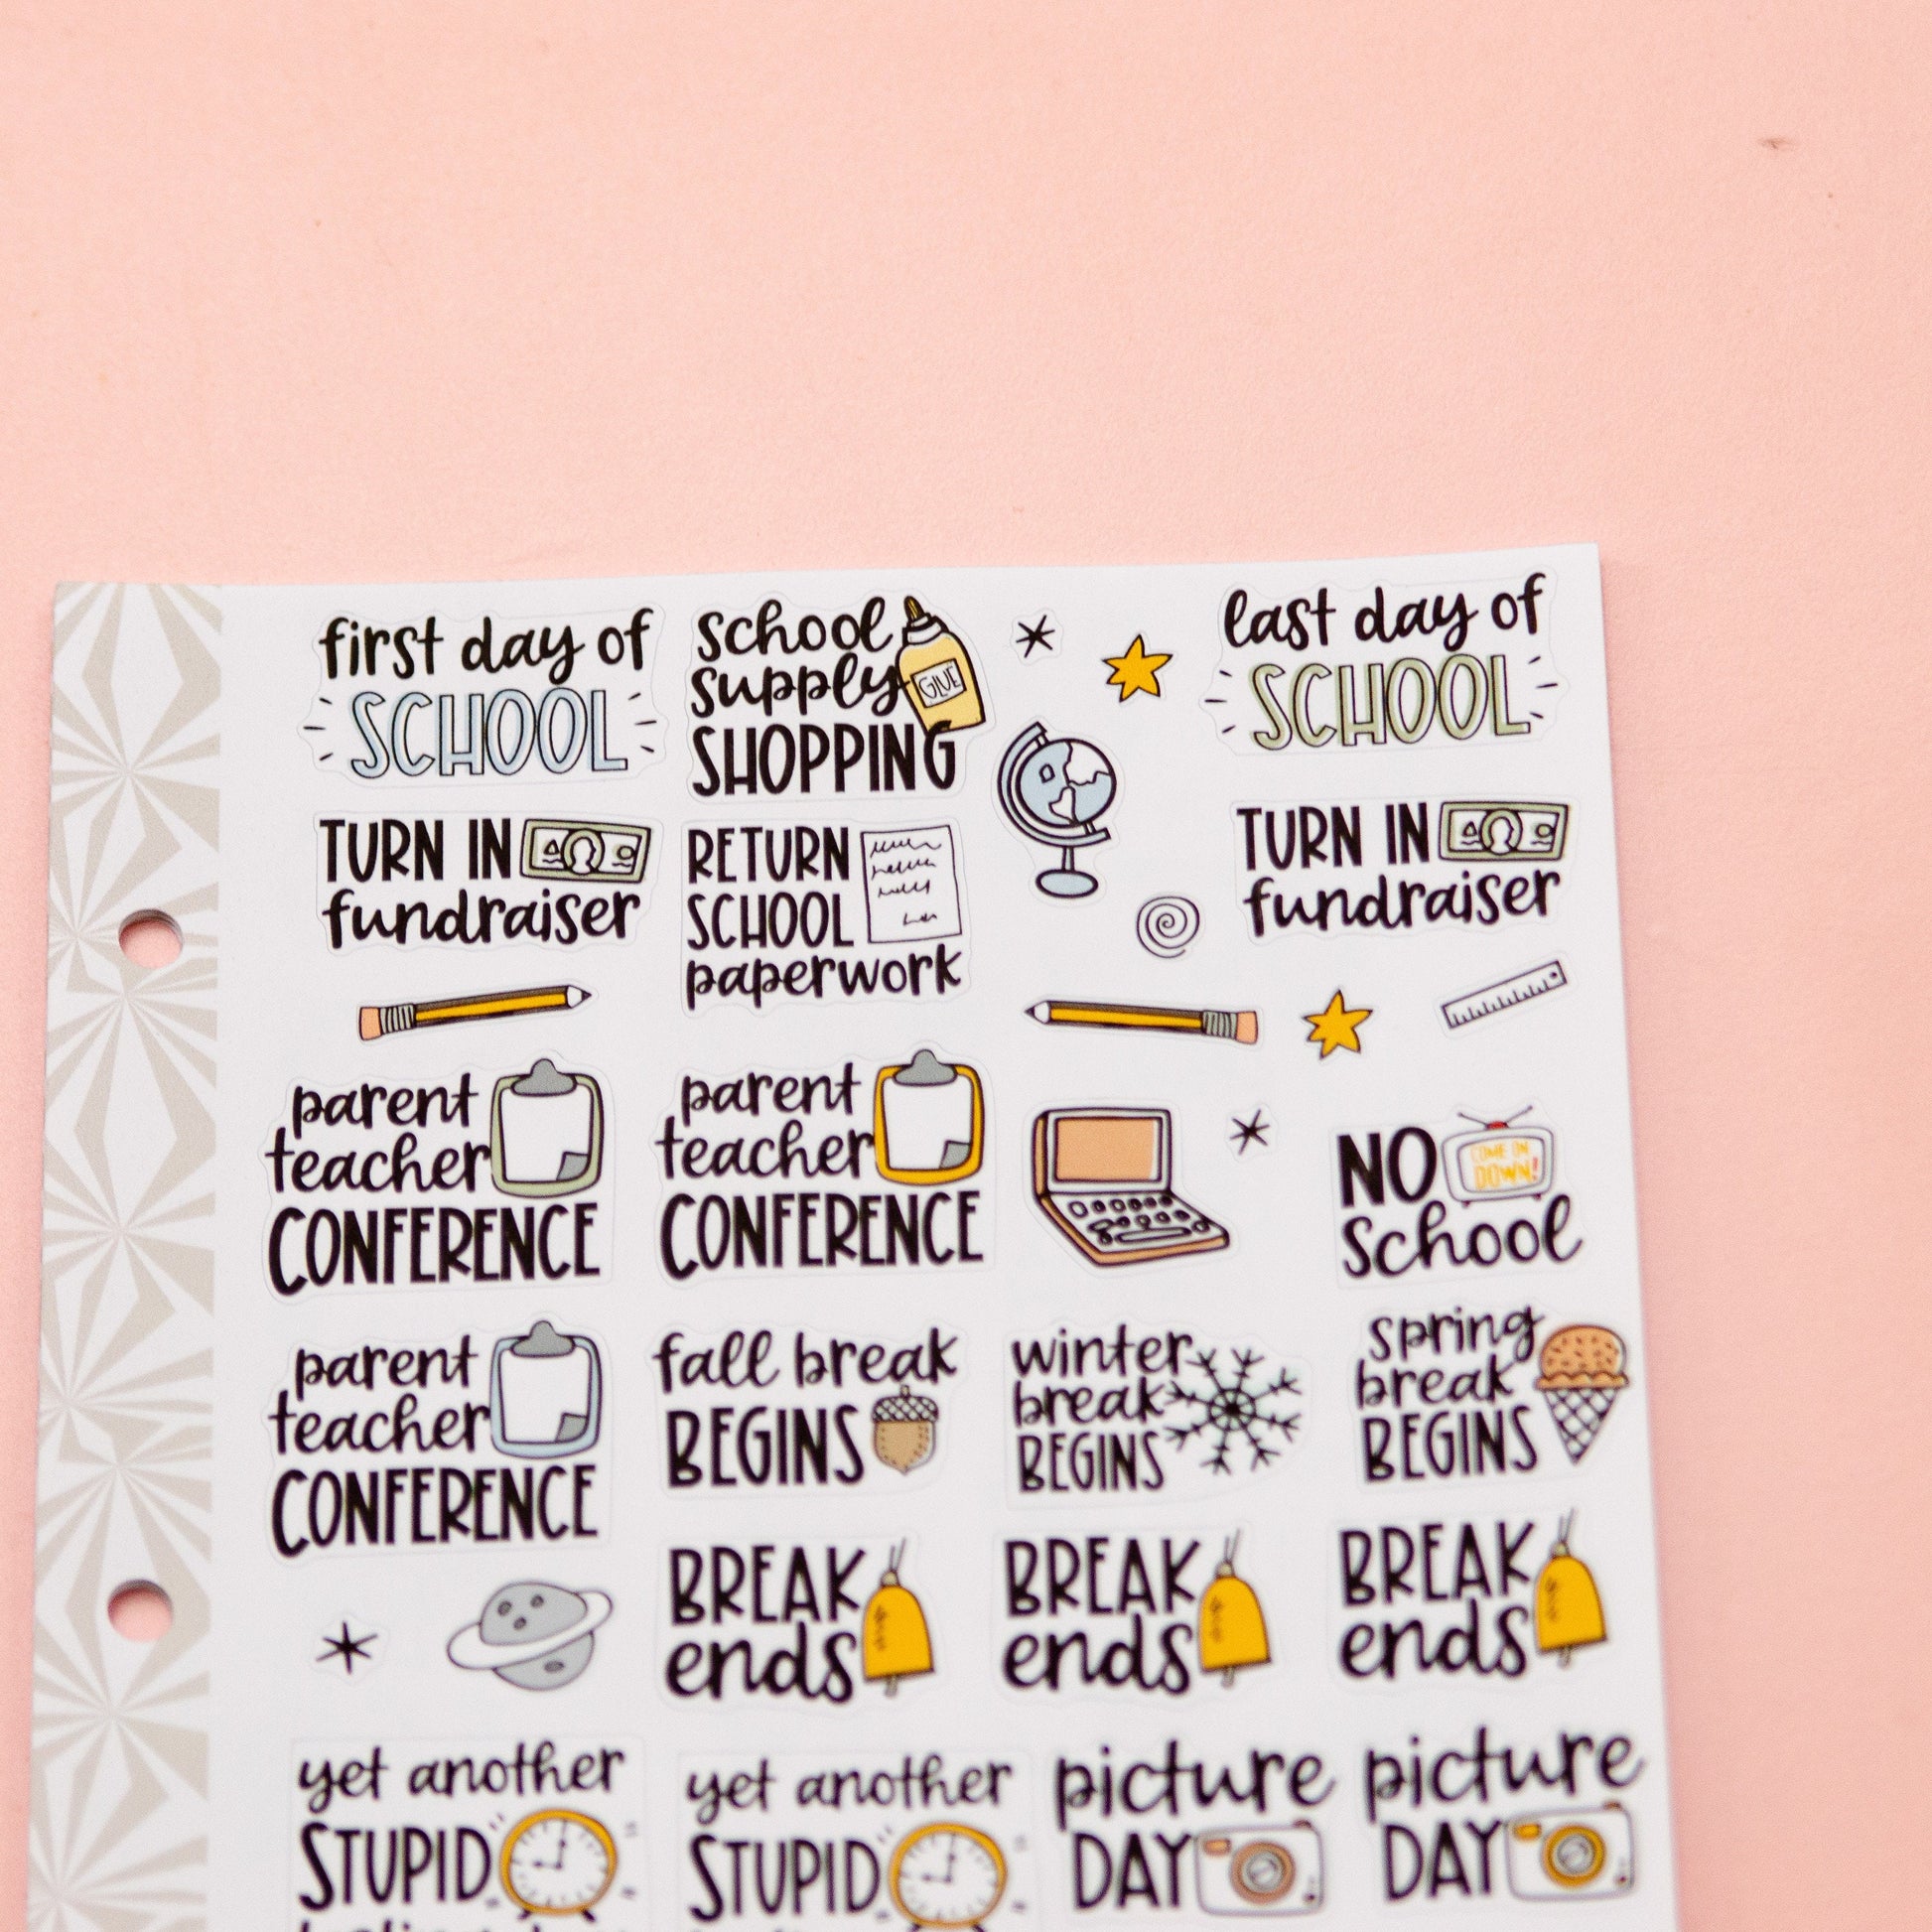 first day of
SCHOOL
school
supply
SHOPPING
GLUE
last day of
SCHOOL
TURN IN
fundraiser
RETURN
SCHOOL
paperwork
TURN IN
fundraiser
parent
teacher
CONFERENCE
parent
teacher
CONFERENCE
NO
School
COME ON
DOWN!
parent
teacher
CONFERENCE
fall break
BEGINS
winter
break
BEGINS
spring
break
BEGINS
BREAK
ends
BREAK
ends
BREAK
ends
yet another
STUPID
yet another
STUPID
picture
DAY
picture
DAY